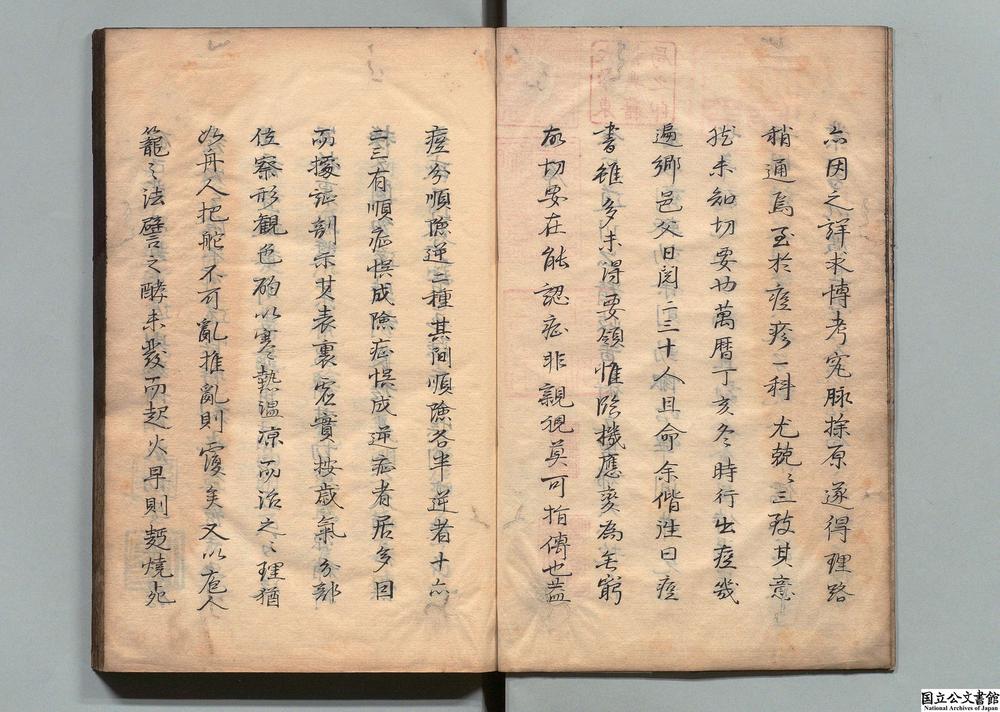 亦因之詳求博考究脉探原遂得理路
稍通焉至於痘疹一科尤兢〻三致其意
然未知切要也萬曆丁亥冬時行出痘幾
遍鄉邑父日閱二三十人且命余偕往曰痘
書雖多未得要領惟臨機應變為無窮
故切要在能認症非親視莫可指傳也蓋
痘分順險逆三種其間順險各半逆者十亦
二三有順症悮成險症悮成逆症者居多因
而據症剖示其表裏虛實按歲氣分部
位察形觀色酌以寒熱温凉而治之〻理猶
如舟人把舵不可亂推亂則覆矣又以庖人
籠〻法譬之酵未發而起火早則麪燒死
国立公文書館
National Archives of Japan